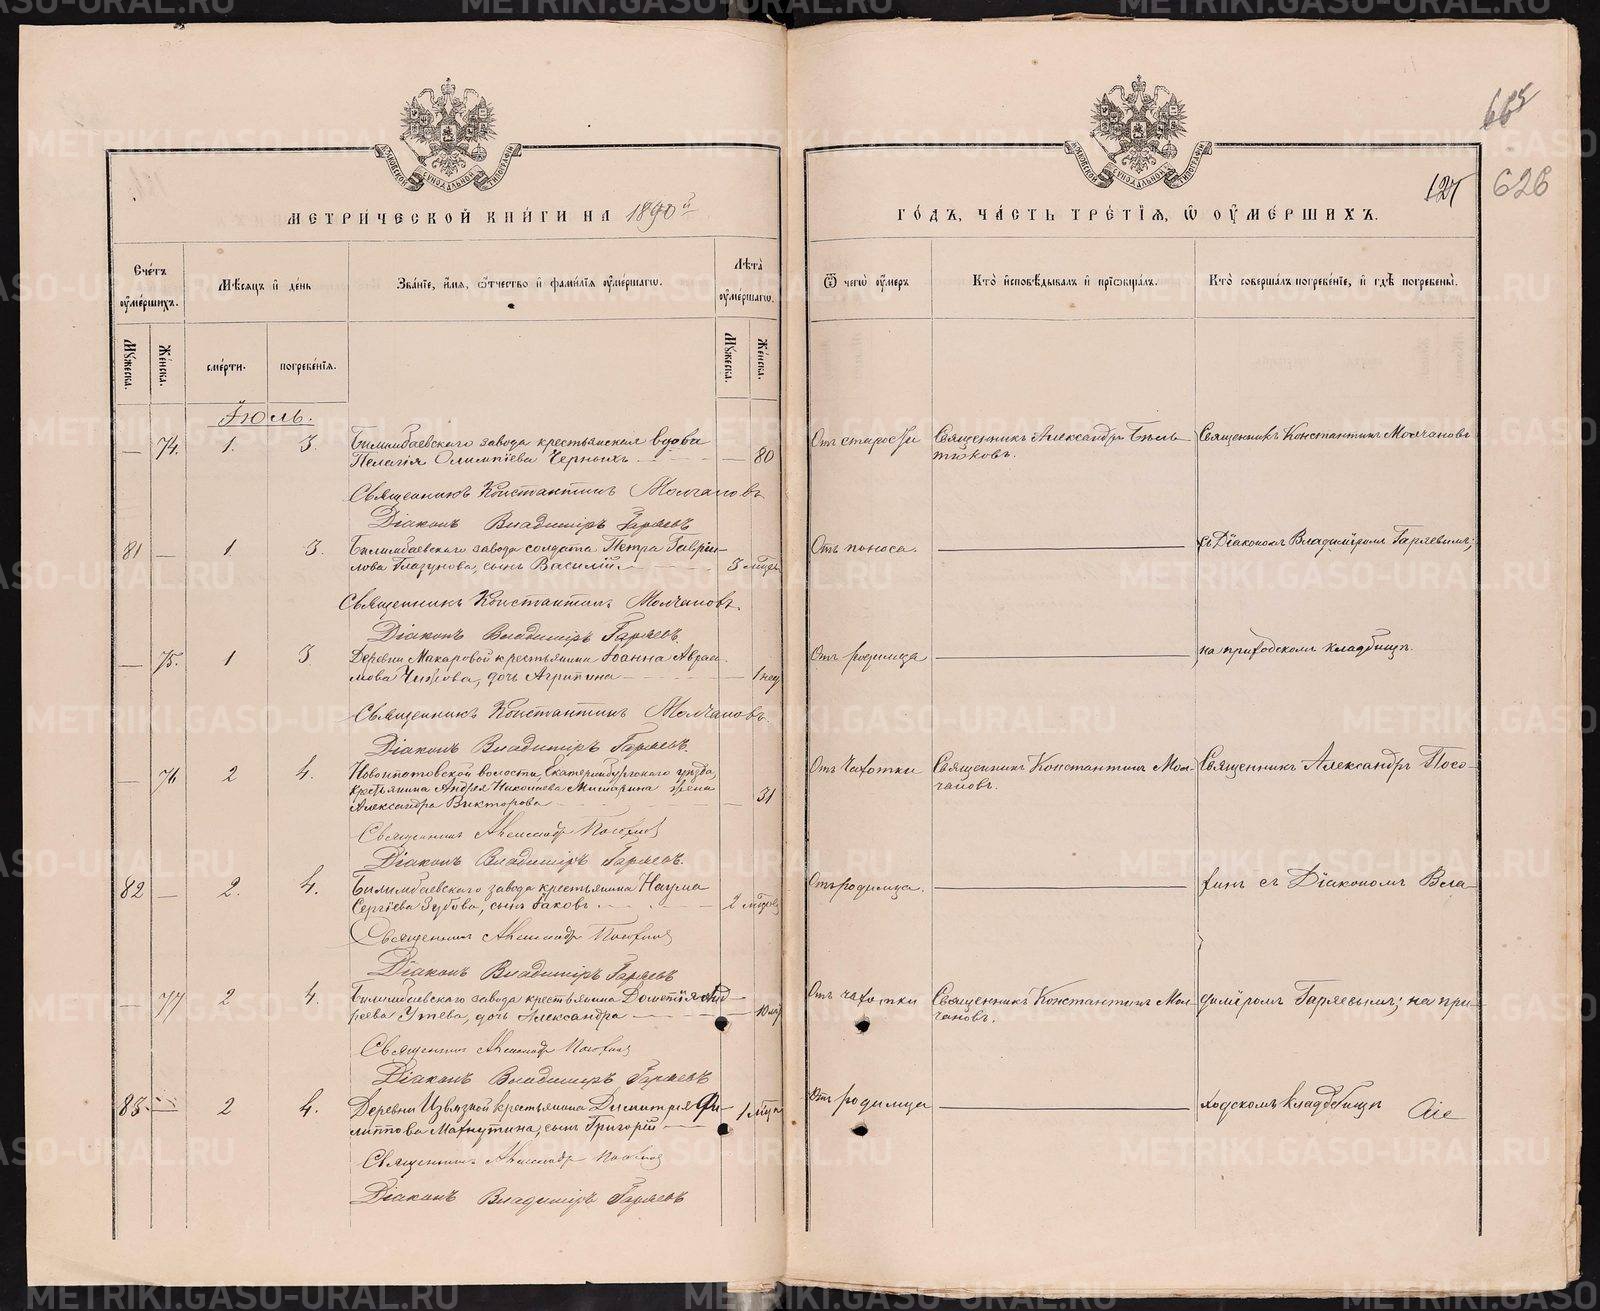 665
626
127
МЕТРИ́ЧЕСКОЙ КНИ́ГИ НА 1890 й
ГО́ДЪ, ЧА́СТЬ ТРЕ́ТІѦ, Ѽ ОУ҆МЕ́РШИХЪ.
Сче́тъ оу҆ме́ршихъ.
Мѣ́сяцъ и҆ де́нь
Зва́ніе, и҆́мя, ѻ҆́тчество и҆ фами́лія оу҆ме́ршагѡ.
Лѣ́та оу҆ме́ршагѡ.
Ѿ чегѡ̀ оу҆́меръ
Кто̀ и҆сповѣ́дывалъ и҆ пріѡбща́лъ.
Кто̀ соверша́лъ погребе́ніе, и҆ гдѣ̀ погребены̀.
Му́жеска.
Же́нска.
сме́рти.
погребе́нія.
Му́жеска.
Же́нска.
Іюль.
— 74. 1. 3. Билимбаевскаго завода крестьянская вдова
Пелагія Олимпіева Черныхъ — 80
Отъ старости
Священникъ Александръ Бѣль-
тюковъ.
Священникъ Константинъ Молчановъ
Священникъ Константинъ Молчановъ
Діаконъ Владиміръ Гаряевъ
81 — 1. 3. Билимбаевскаго завода солдата Петра Гаврі-
лова Глазунова, сынъ Василій. 3 мѣсяц
Отъ поноса. —
съ Діакономъ Владиміромъ Гаряевымъ;
Священникъ Константинъ Молчановъ.
Діаконъ Владиміръ Гаряевъ.
— 75. 1 3. Деревни Макаровой крестьянина Іоанна Авраа-
мова Чижова, дочь Агрипина — 1 нед
Отъ родимца —
на приходском кладбищѣ.
Священникъ Константинъ Молчановъ.
Діаконъ Владиміръ Гаряевъ.
— 76 2 4. Новоипатовской волости, Екатеринбургскаго уѣзда,
крестьянина Андрея Николаева Мишарина жена
Александра Викторова — 31
Отъ чахотки
Священникъ Константинъ Мол-
чановъ.
Священникъ Александръ Посо-
Священникъ Александръ Посохинъ
Діаконъ Владиміръ Гаряевъ.
82 — 2. 4. Билимбаевскаго завода крестьянина Наума
Сергіева Зубова, сынъ Іаковъ — 2 мѣсяц
Отъ родимца. —
хинъ съ Діакономъ Вла-
Священникъ Александръ Посохинъ
Діаконъ Владиміръ Гаряевъ
— 77 2 4. Билимбаевскаго завода крестьянина Дометія Анд-
реева Утева, дочь Александра — 10 мѣ
Отъ чахотки
Священникъ Константинъ Мол-
чановъ.
диміромъ Гаряевымъ; на при-
Священникъ Александръ Посохинъ
Діаконъ Владиміръ Гаряевъ
83. — 2 4. Деревни Извязной крестьянина Димитрія Фи-
липпова Махнутина, сынъ Григорій — 1 мѣця
Отъ родимца —
ходскомъ кладбищѣ
Священникъ Александръ Посохинъ
Діаконъ Владиміръ Гаряевъ
METRIKI.GASO-URAL.RU